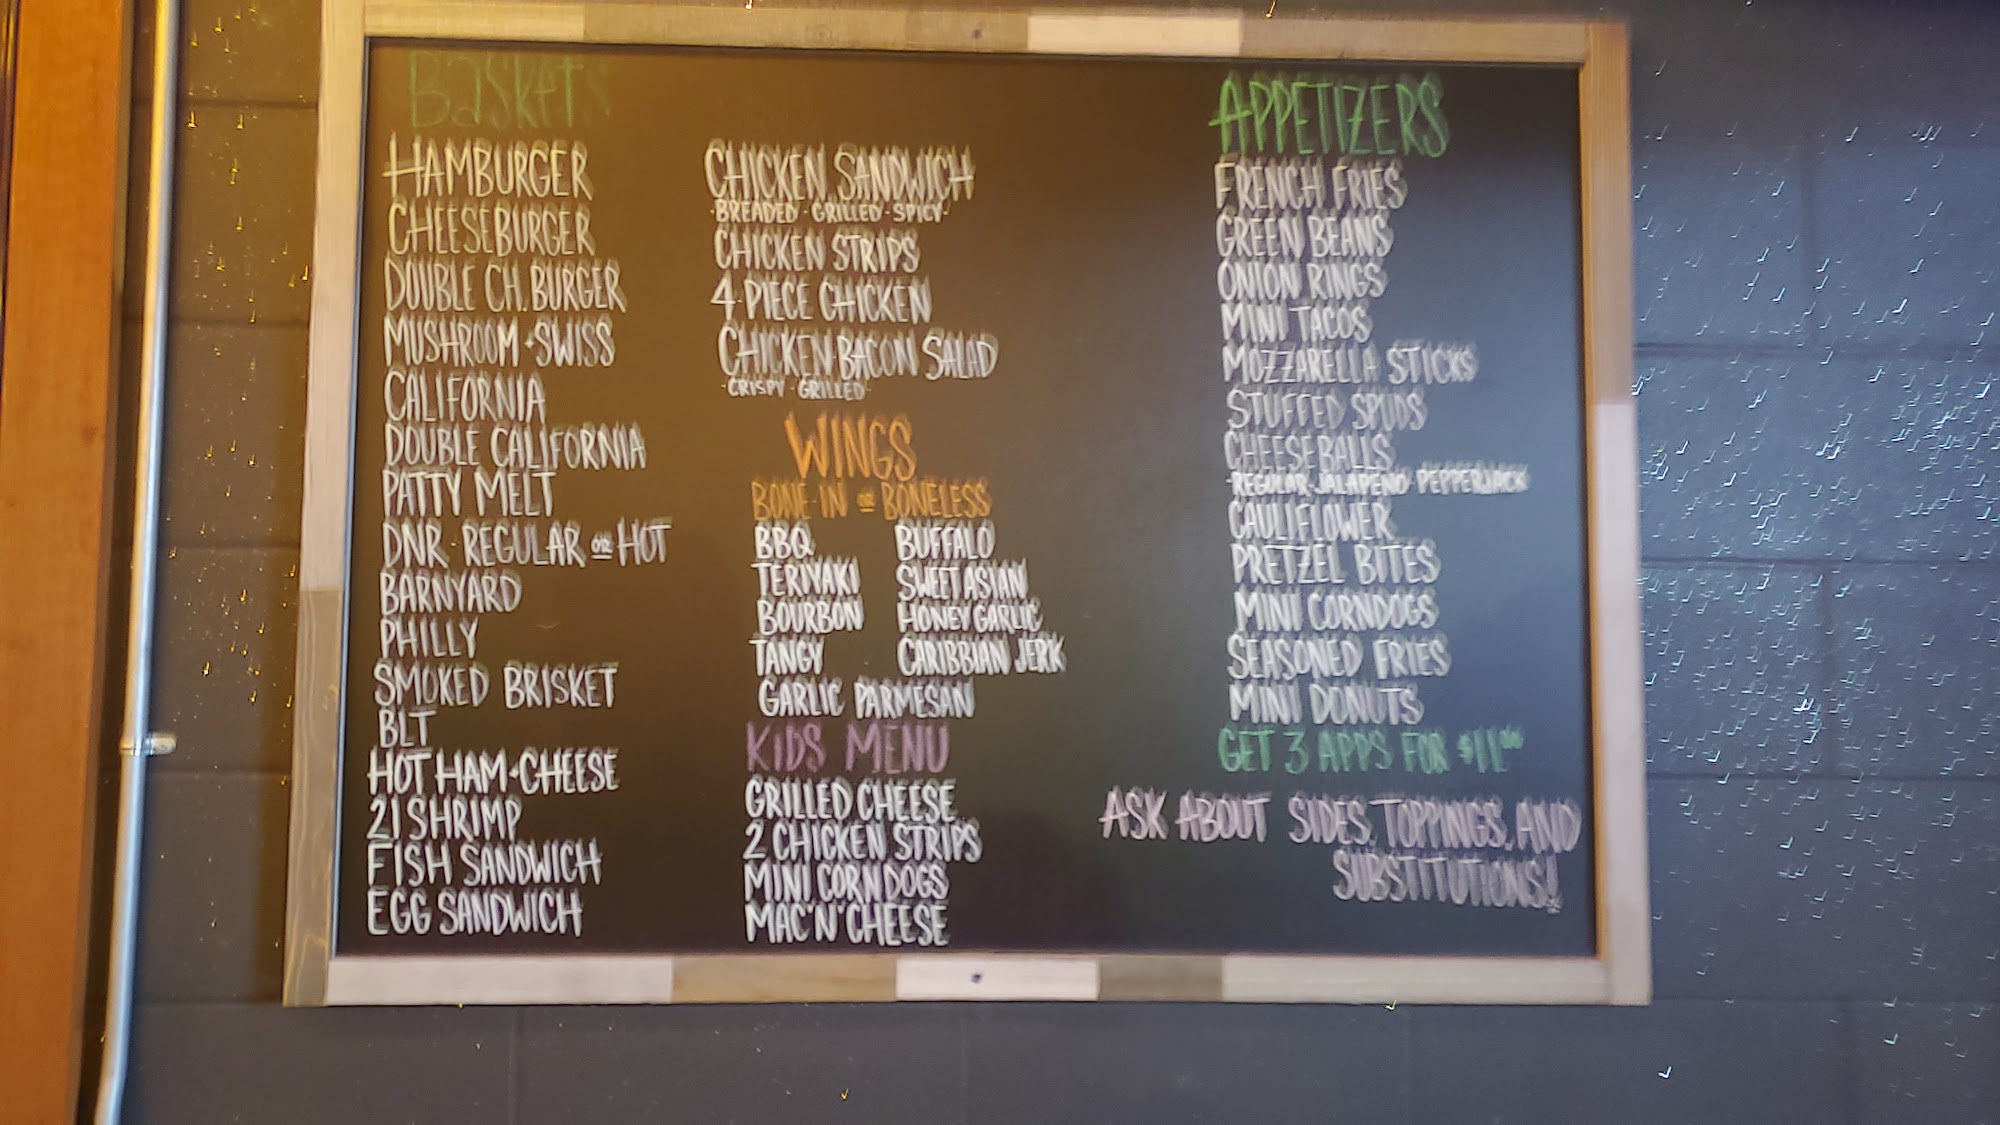 Baskets
HAMBURGER
CHEESEBURGER
DOUBLE CH. BURGER
MUSHROOM + SWISS
CALIFORNIA
DOUBLE CALIFORNIA
PATTY MELT
DNR - REGULAR OR HOT
BARNYARD
PHILLY
SMOKED BRISKET
BLT
HOT HAM + CHEESE
21 SHRIMP
FISH SANDWICH
EGG SANDWICH
CHICKEN SANDWICH
- BREADED - GRILLED - SPICY -
CHICKEN STRIPS
4-PIECE CHICKEN
CHICKEN BACON SALAD
- CRISPY - GRILLED -
WINGS
BONE-IN OR BONELESS
BBQ BUFFALO
TERIYAKI SWEET ASIAN
BOURBON HONEY GARLIC
TANGY CARIBBIAN JERK
GARLIC PARMESAN
KIDS MENU
GRILLED CHEESE
2 CHICKEN STRIPS
MINI CORNDOGS
MAC'N'CHEESE
APPETIZERS
FRENCH FRIES
GREEN BEANS
ONION RINGS
MINI TACOS
MOZZARELLA STICKS
STUFFED SPUDS
CHEESEBALLS
- REGULAR - JALAPENO - PEPPERJACK
CAULIFLOWER
PRETZEL BITES
MINI CORNDOGS
SEASONED FRIES
MINI DONUTS
GET 3 APPS FOR $11.00
ASK ABOUT SIDES, TOPPINGS, AND
SUBSTITUTIONS!